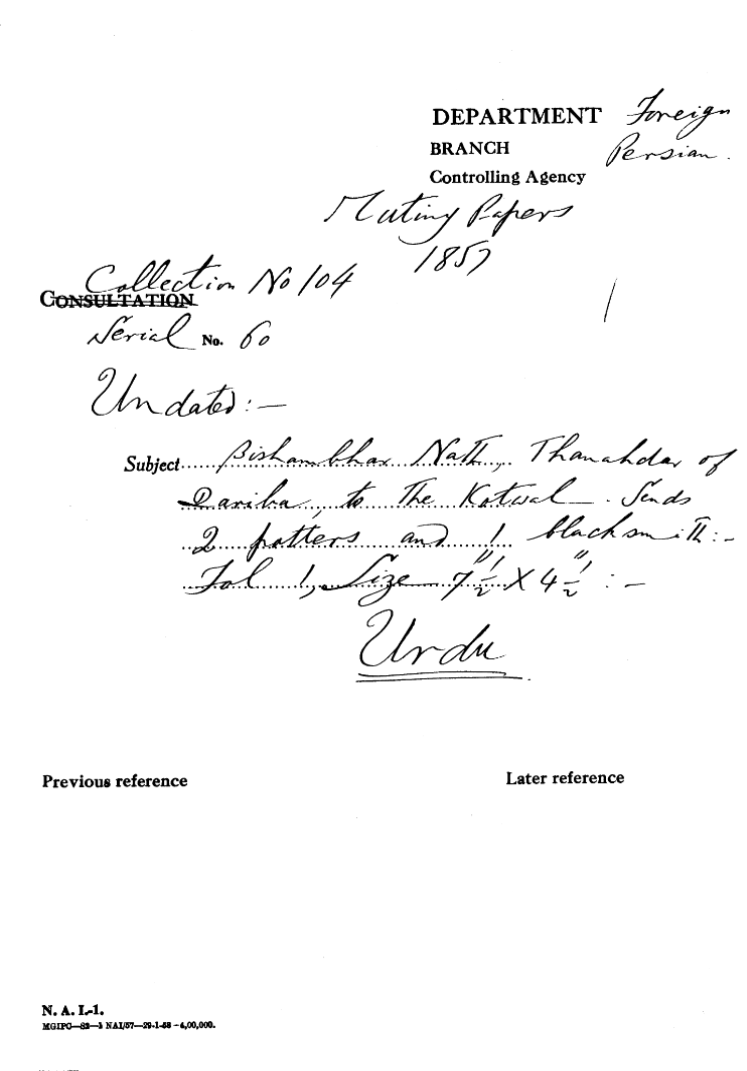 DEPARTMENT Foreign
BRANCH Persian.
Controlling Agency
Mutiny Papers
1857
Collection No 104
CONSULTATION
Serial No. 60
Undated:—
Subject Bishambhar Nath, Thanahdar of
Dariba, to the Kotwal. Sends
2 potters and 1 blacksmith:-
Fol 1, Size 7½" X 4½":-
Urdu
Previous reference Later reference
N. A. I.-1.
MGIPC—S3—3 NAI/57—29-1-58—4,00,000.